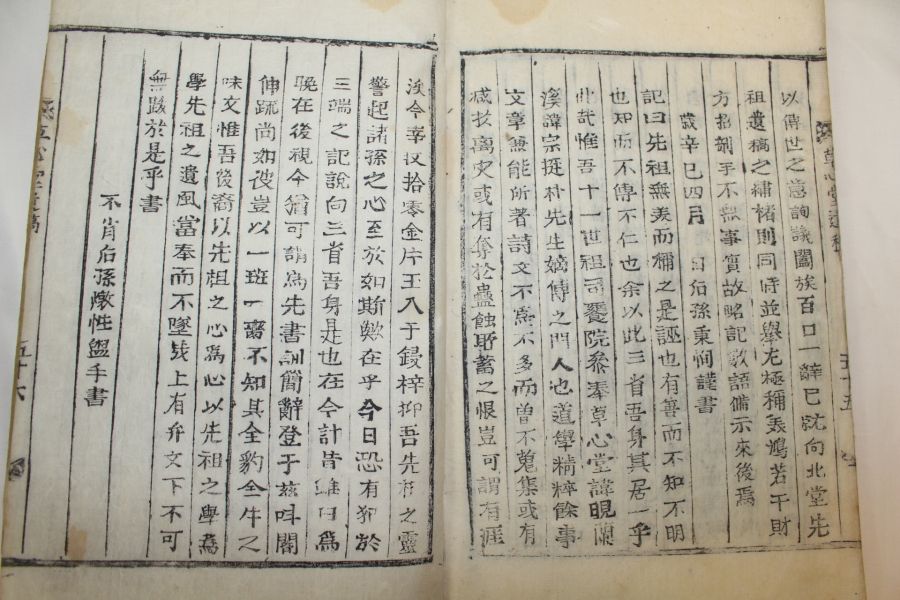 以傳世之意詢議闔族百口一辭已沈向北堂先
祖遺稿之繡楮則同時並擧尤極稱羨鳩若干財
方招剞手不無事實故略記數語備示來後爲
歲辛巳四月 日后孫秉恂謹書
記曰先祖無美而稱之是誣也有善而不知不明
也知而不傳不仁也余以此三省吾身其居一乎
此哉惟吾十一世祖司饔院參奉草心堂諱晛蘭
溪諱宗挺朴先生嫡傳之門人也道學精粹餘事
文章兼能所著詩文不爲不多而曾不蒐集或有
或有奪於蟲蝕所蓄之恨豈可謂有涯
草心堂遺稿
五十五
後今幸收拾零金片玉入于鋟梓抑吾先祖之靈
警起諸孫之心至於如斯歟在乎今日恐有犯於
三端之記說向三省吾身是也在今計昔雖曰爲
晩在後視今猶可謂爲先書訓簡辭登于玆叫閽
伸疏尚如彼豈以一班一臠不知其全豹全牛之
味文惟吾後裔以先祖之心爲心以先祖之學爲
學先祖之遺風當奉而不墜哉上有弁文下不可
無跋於是乎書
不肖后孫燉性盥手書
五十六